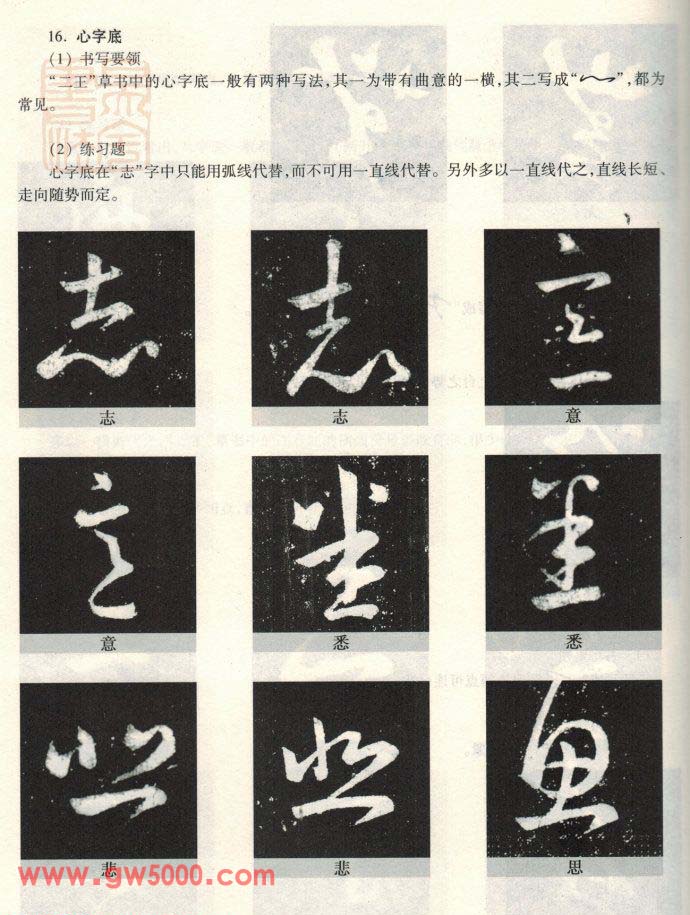 16. 心字底
(1) 书写要领
“二王”草书中的心字底一般有两种写法,其一为带有曲意的一横,其二写成“ ”,都为
常见。
(2) 练习题
心字底在“志”字中只能用弧线代替,而不可用一直线代替。另外多以一直线代之,直线长短、
走向随势而定。
志 志 意
意 悉 悉
悲 悲 思
www.gw5000.com